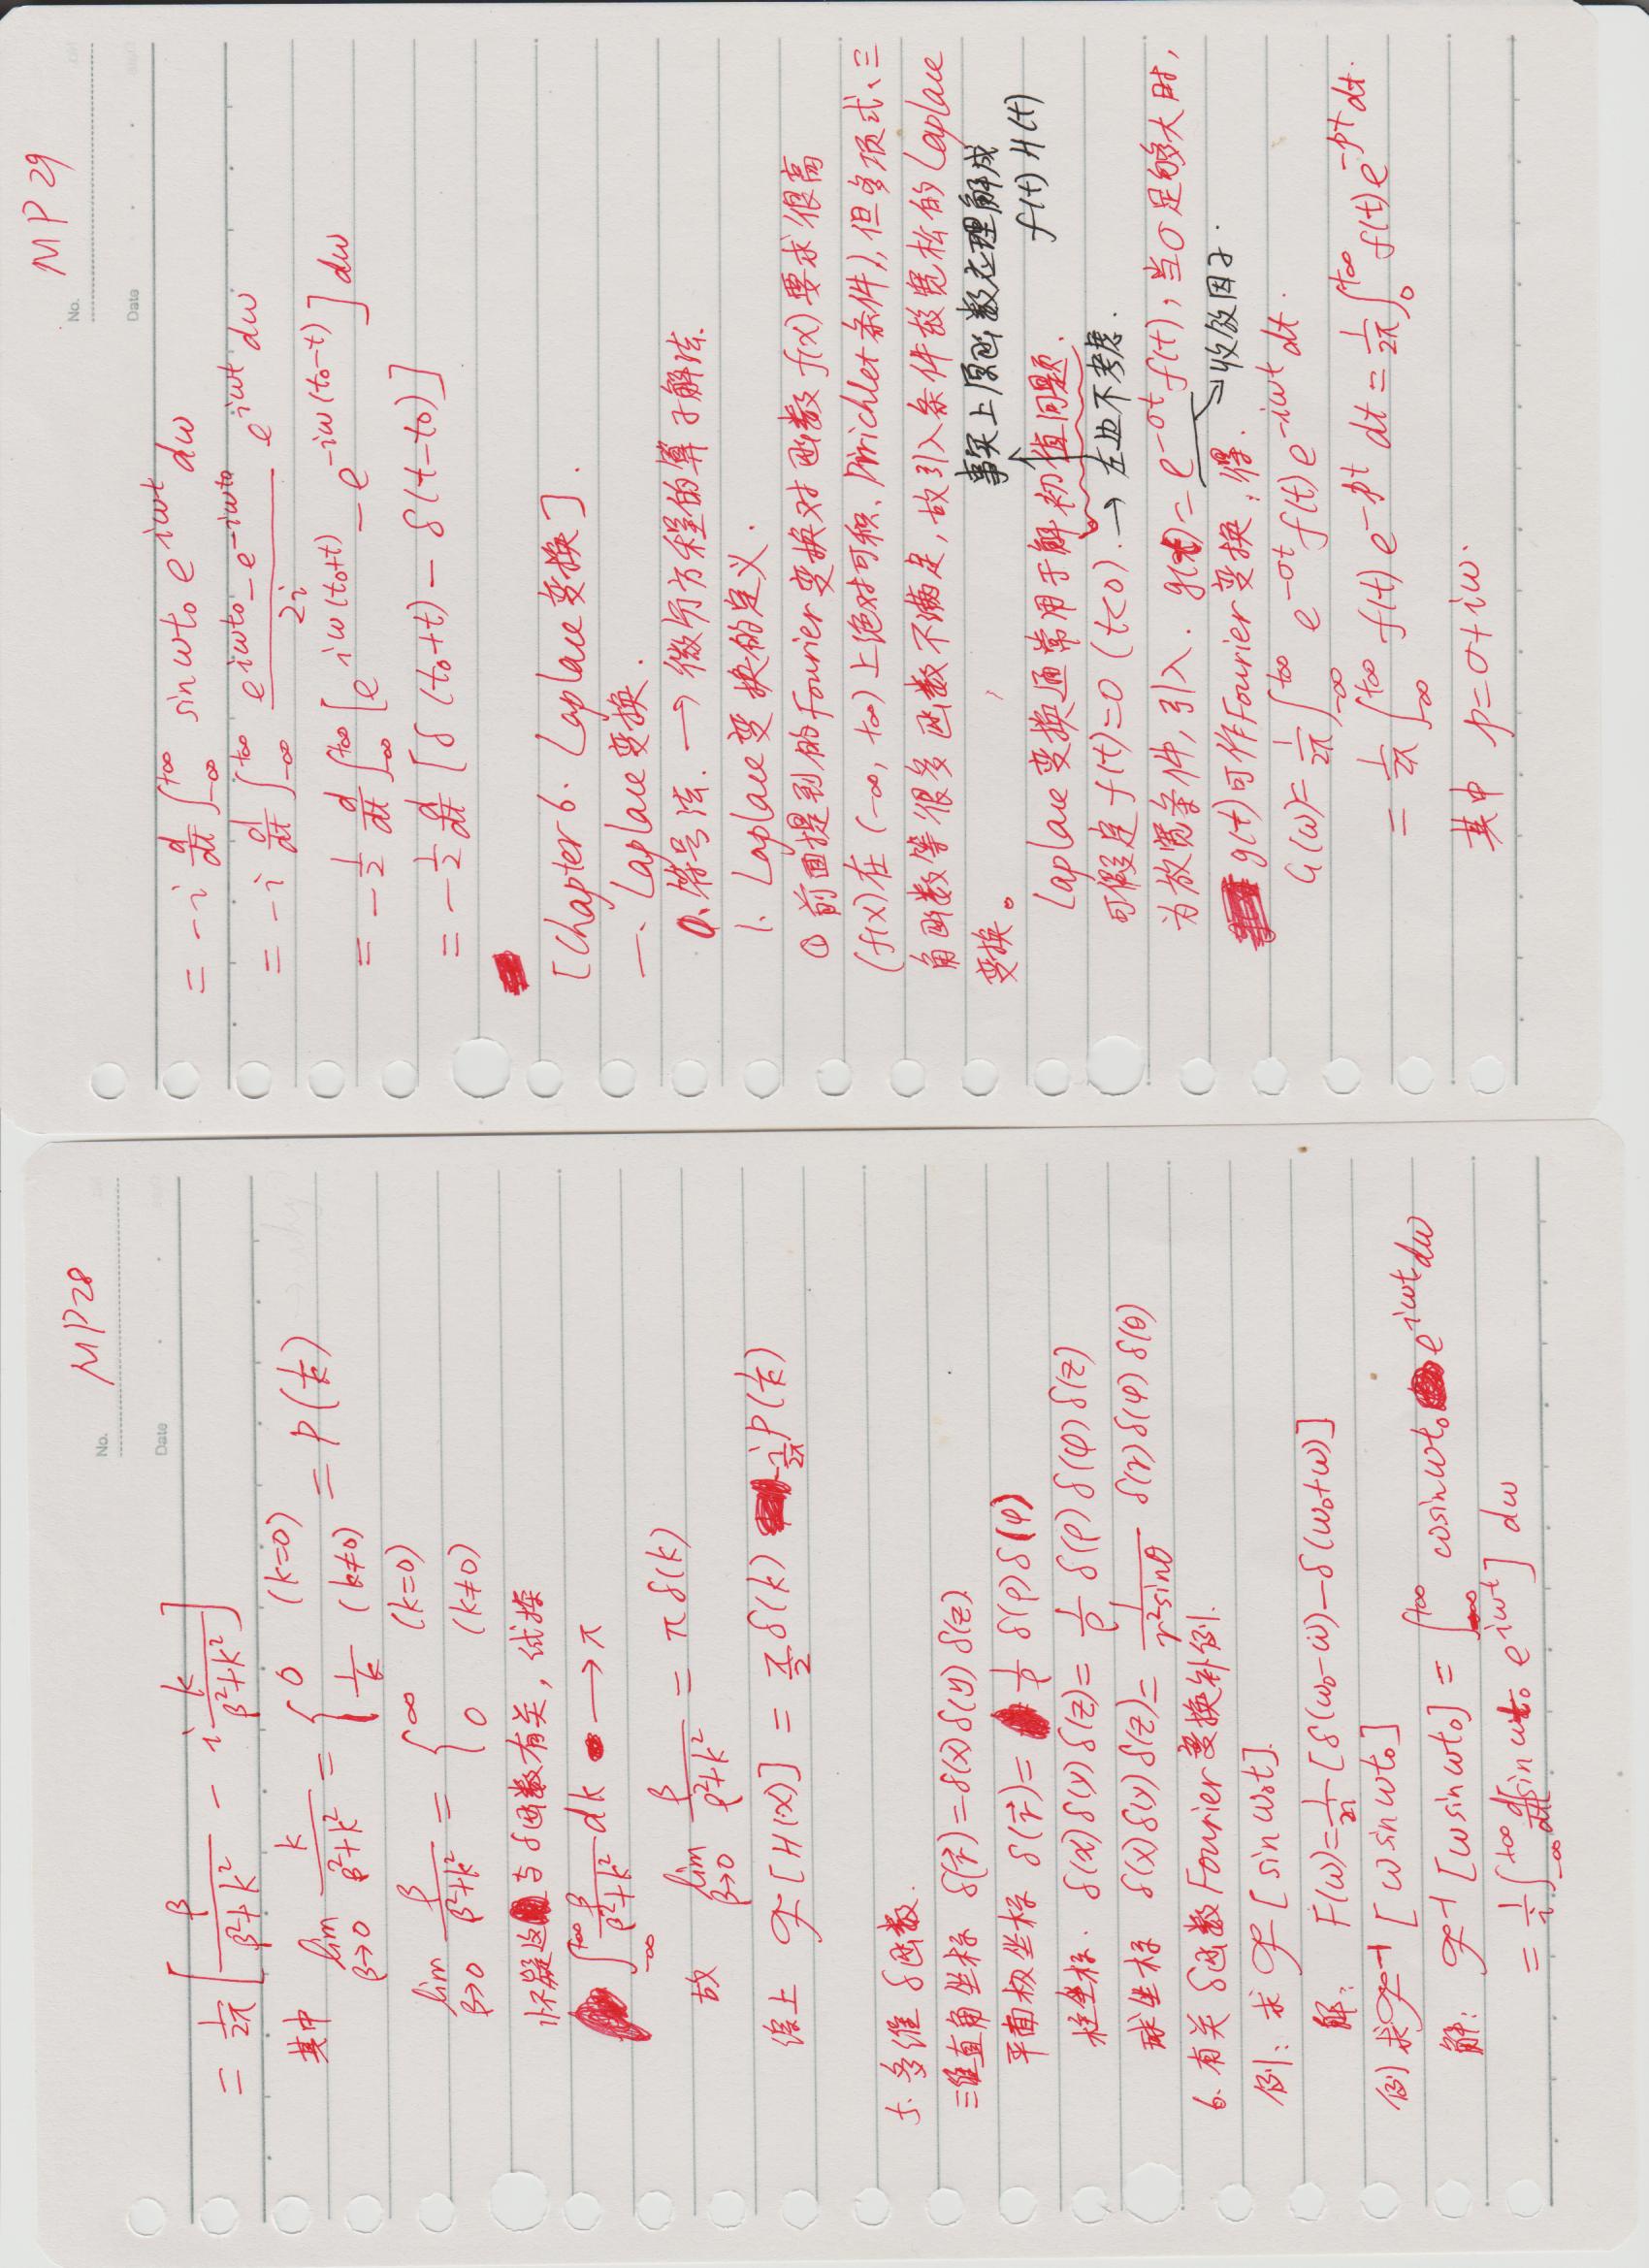 MP28
No.
Date
= 1/2π [ β/(β²+k²) - i k/(β²+k²) ]
其中 lim_{β→0} k/(β²+k²) = { 0 (k=0) ; 1/k (k≠0) = P(1/k)
lim_{β→0} β/(β²+k²) = { ∞ (k=0) ; 0 (k≠0)
怀疑这与δ函数有关, 试探
∫_{-∞}^{+∞} β/(β²+k²) dk → π
故 lim_{β→0} β/(β²+k²) = πδ(k)
综上 ℱ[H(x)] = π/2 δ(k) - i/2π P(1/k)
5. 多维 δ函数.
三维直角坐标 δ(r⃗)=δ(x)δ(y)δ(z).
平面极坐标 δ(r⃗)= 1/ρ δ(ρ)δ(φ)
柱坐标. δ(x)δ(y)δ(z)= 1/ρ δ(ρ)δ(φ)δ(z)
球坐标 δ(x)δ(y)δ(z)= 1/(r²sinθ) δ(r)δ(φ)δ(θ)
6. 有关 δ函数Fourier变换补例.
例: 求 ℱ[sinω₀t].
解: F(ω)=1/2i [δ(ω₀-ω)-δ(ω₀+ω)]
例 求ℱ⁻¹[ωsinωt₀]
解: ℱ⁻¹[ωsinωt₀] = ∫_{-∞}^{+∞} ωsinωt₀ e^{iωt} dω
= 1/i ∫_{-∞}^{+∞} d/dt[sinωt₀ e^{iωt}] dω
MP 29
No.
Date
= -i d/dt ∫_{-∞}^{+∞} sinωt₀ e^{iωt} dω
= -i d/dt ∫_{-∞}^{+∞} (e^{iωt₀}-e^{-iωt₀})/2i e^{iωt} dω
= -1/2 d/dt ∫_{-∞}^{+∞} [e^{iω(t₀+t)} - e^{-iω(t₀-t)}] dω
= -1/2 d/dt [δ(t₀+t) - δ(t-t₀)]
[Chapter 6. Laplace变换].
一、Laplace变换.
0. 符号法. → 微分方程的算子解法.
1. Laplace变换的定义.
① 前面提到的Fourier变换对函数f(x)要求很高
(f(x)在(-∞, +∞)上绝对可积、Dirichlet条件), 但多项式、三
角函数等很多函数不满足, 故引入条件放宽松的Laplace
变换。
事实上原函数应理解成
f(t)H(t)
Laplace变换通常用于解初值问题.
可假定f(t)=0 (t<0). → 左边不考虑.
为放宽条件, 引入. g(t)=e^{-σt}f(t), 当σ足够大时,
收敛因子.
g(t)可作Fourier变换, 得.
G(ω)= 1/2π ∫_{-∞}^{+∞} e^{-σt}f(t)e^{-iωt}dt.
= 1/2π ∫_{-∞}^{+∞} f(t)e^{-pt} dt = 1/2π ∫_0^{+∞} f(t)e^{-pt}dt.
其中 p=σ+iω.